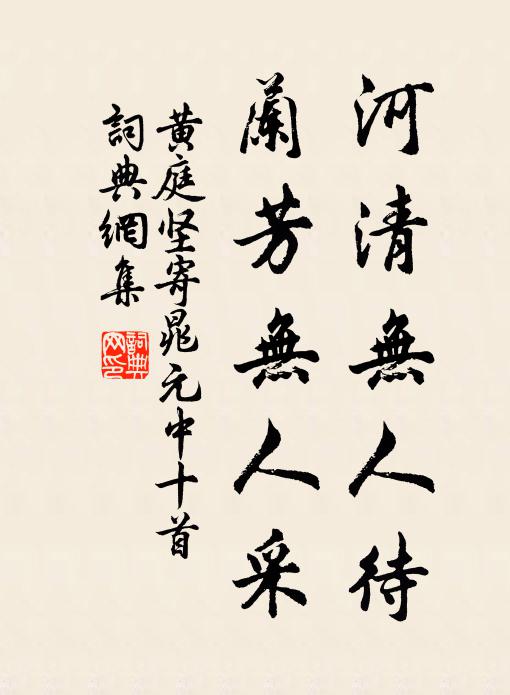 河清無人待
蘭芳無人采
黄庭坚寄晁元中十首
詞典網集
詞典网印